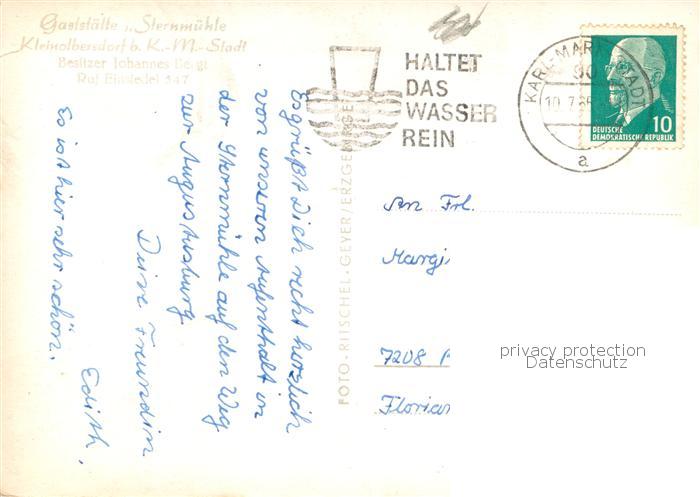 Gaststätte „Sternmühle
Kleinolbersdorf b. K.-M.-Stadt
Besitzer Johannes Bergt
Ruf Einsiedel 347
Es grüßt Dich recht herzlich
von unserem Aufenthalt in
der Sternmühle auf den Weg
zur Augustusburg
Deine Freundin
Edith,
Es ist hier sehr schön.
FOTO-RITSCHEL-GEYER/ERZGEBIRGE
HALTET
DAS
WASSER
REIN
KARL-MARX-STADT
90
10.7.65
a
10
DEUTSCHE
DEMOKRATISCHE REPUBLIK
An Frl.
Margi
7208
Florian
privacy protection
Datenschutz